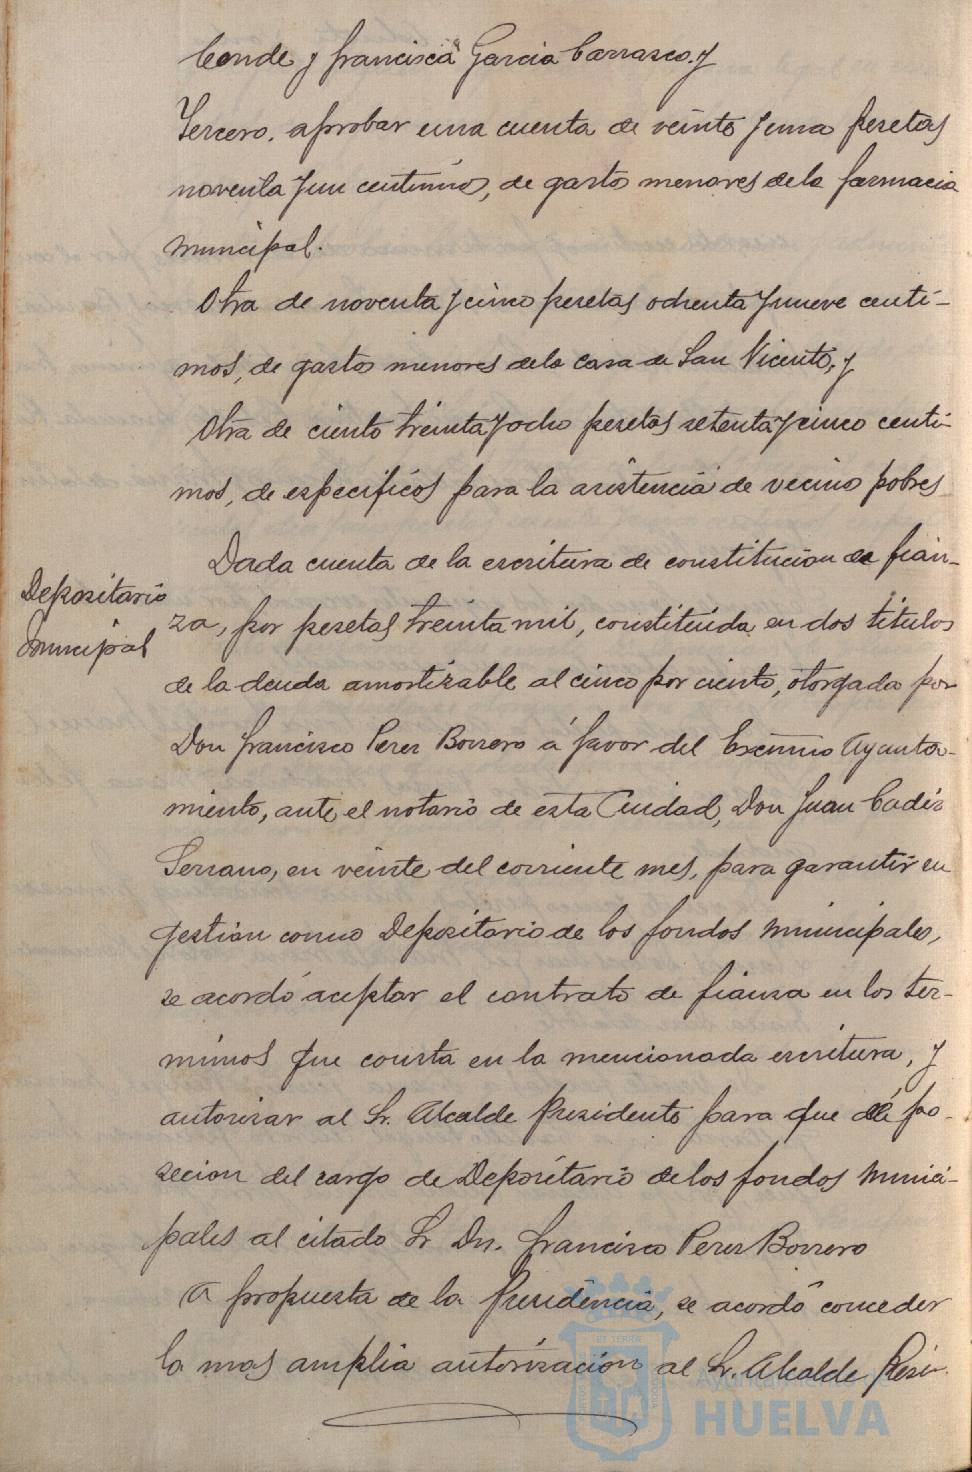 Conde y Francisca Garcia Carrasco, y
Tercero, aprobar una cuenta de veinte y una pesetas
noventa y un centimos, de gastos menores de la farmacia
municipal.
Otra de noventa y cinco pesetas ochenta y nueve centi-
mos, de gastos menores de la casa de San Vicente, y
Otra de ciento treinta y ocho pesetas setenta y cinco centi-
mos, de especificos para la asistencia de vecino pobres
Dada cuenta de la escritura de constitucion de fian-
Depositario
municipal
za, por pesetas treinta mil, constituida en dos titulos
de la deuda amortizable al cinco por ciento, otorgada por
Don Francisco Perez Borrero á favor del Excmo Ayunta-
miento, ante el notario de esta Ciudad, Don Juan Cadiz
Serrano, en veinte del corriente mes, para garantir su
gestion como Depositario de los fondos municipales,
se acordó aceptar el contrato de fianza en los ter-
minos que consta en la mencionada escritura, y
autorizar al Sr. Alcalde Presidente para que dé po-
secion del cargo de Depositario de los fondos munici-
pales al citado Sr Dn. Francisco Perez Borrero
A propuesta de la Presidencia, se acordó conceder
la mas amplia autorizacion al Sr. Alcalde Presi-
Ayuntamiento de
HUELVA